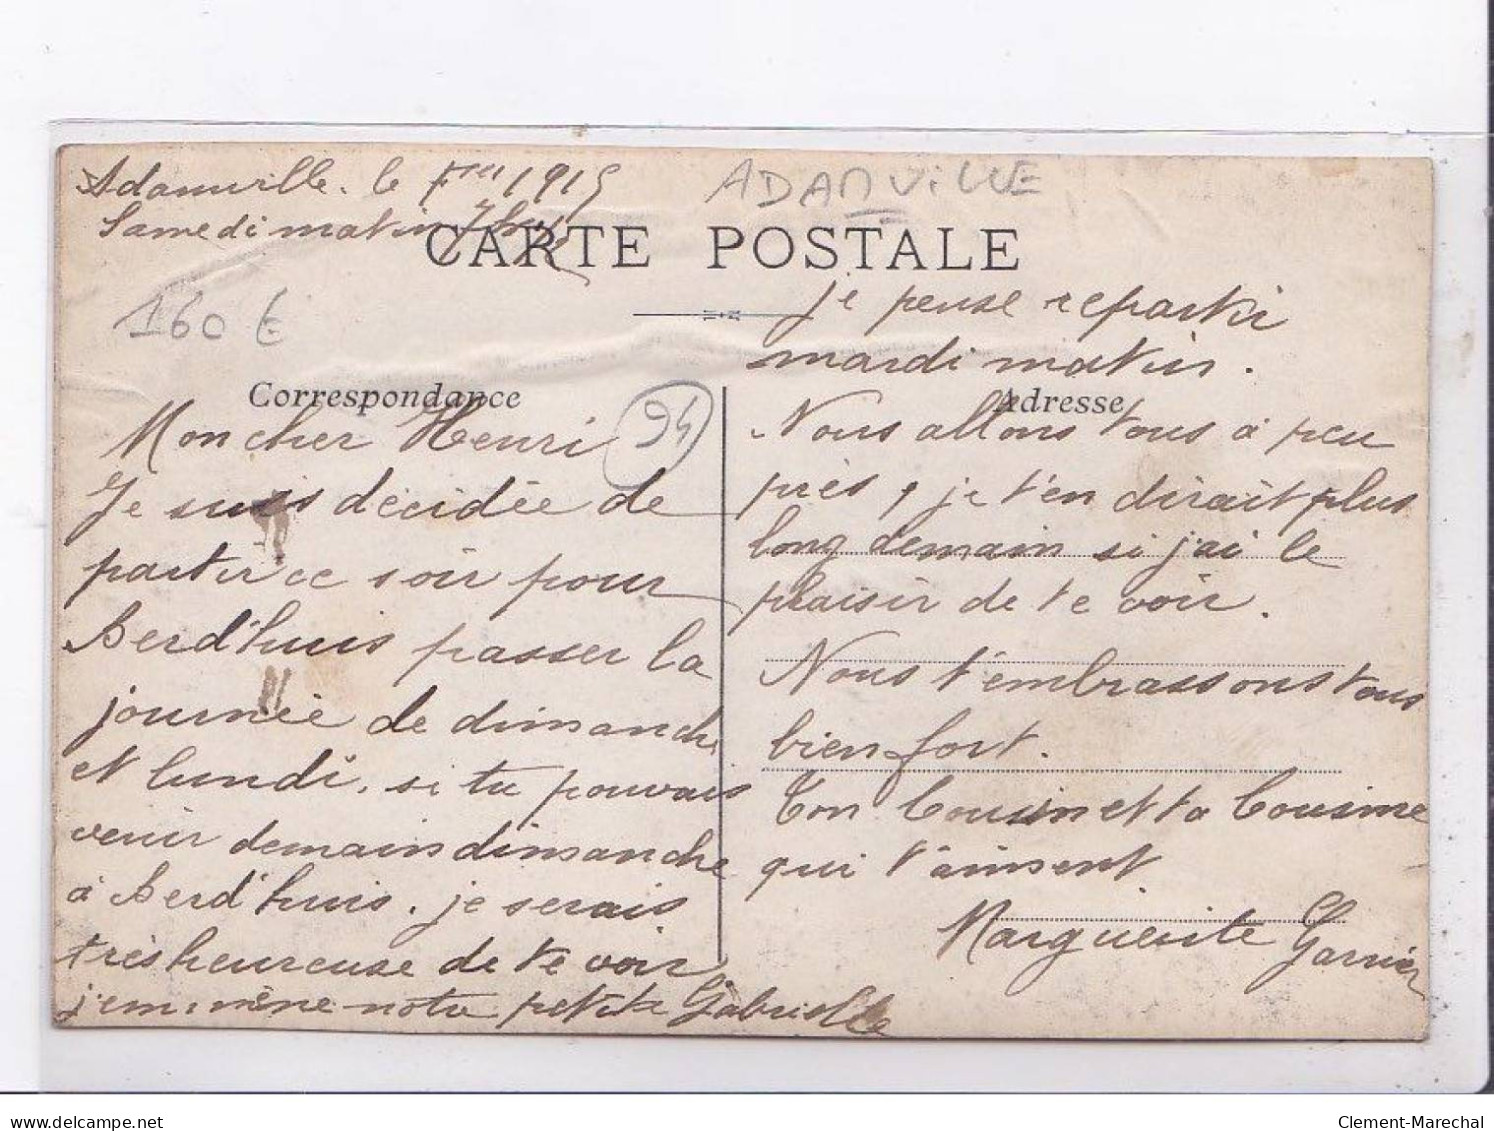 Adamville. le 1915
Samedi matin
ADAMVILLE
CARTE POSTALE
160 €
Correspondance
94
Mon cher Henri
Je suis décidée de
partir ce soir pour
Berd'huis passer la
journée de dimanche
et lundi. si tu pouvais
venir demain dimanche
à Berd'huis. je serais
très heureuse de te voir
j'emmène notre petite Gabrielle
je pense repartir
mardi matin.
Adresse
Nous allons tous à peu
près, je t'en dirait plus
long demain si j'ai le
plaisir de te voir.
Nous t'embrassons tous
bien fort.
Ton Cousin et ta Cousine
qui t'aiment
Marguerite Garnier
delcampe.net
Clement-Marechal